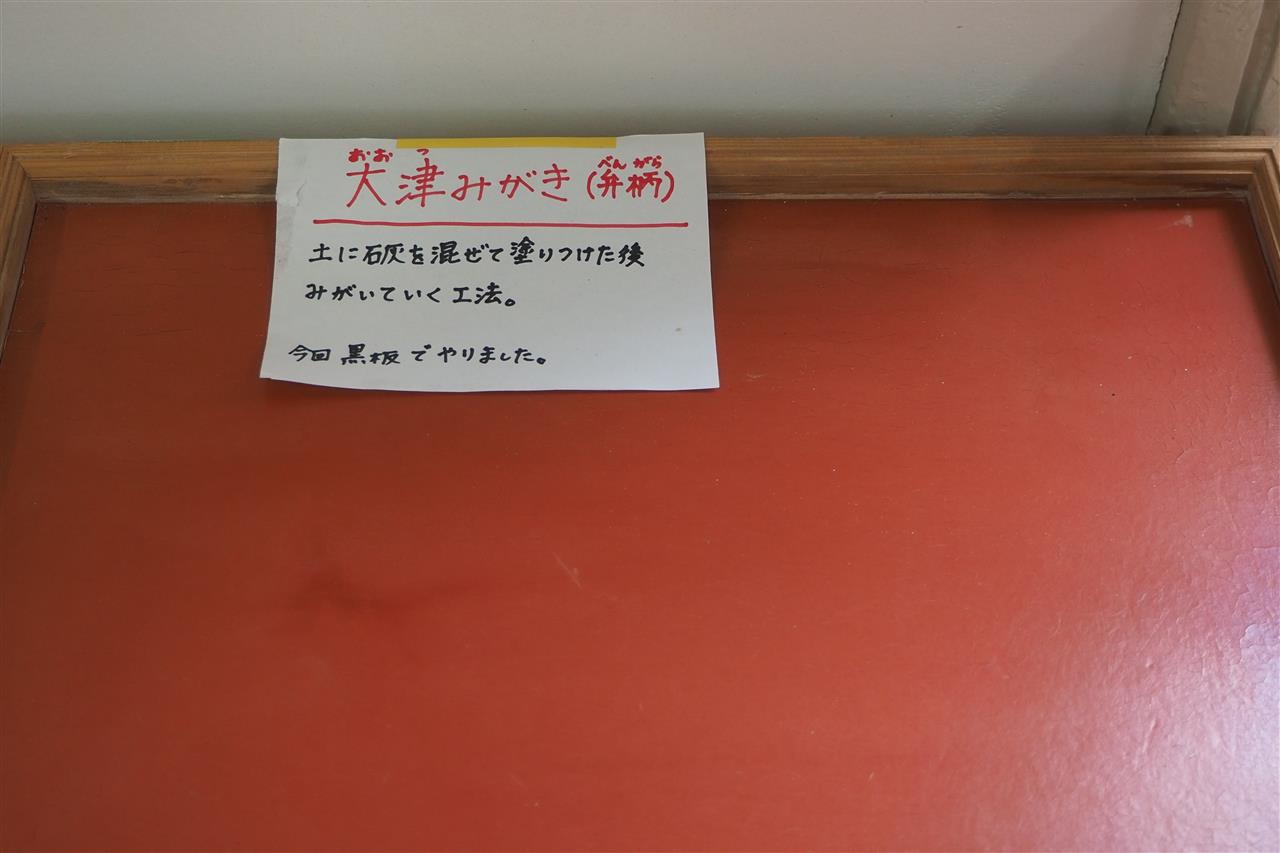 大津みがき(弁柄)
土に石灰を混ぜて塗りつけた後
みがいていく工法。
今回黒板でやりました。